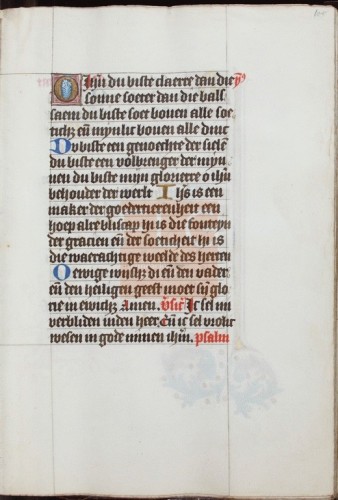 O ihū du biste claerre dan die ys
sonne soeter dan die bals
saem du biste soet bouen alle soe
ticheẏ eñ mynlic bouen alle dinc
Du biste een genoechte der sielē
du biste een volbrenger der myn
nen du biste mijn gloriere o ihū
behouder der werlt Ihs is een
maker der goedertierenheit een
hoep alre bliscap hi is die fonteyn
der gracien eñ der soeticheit hi is
die waerachtige weelde des herten
O ewige wijsheẏ di eñ den vader
eñ den heiligen geest moet sy glo
rie in ewicheẏ Amen. vsic Ic sel mi
verbliden inden heer, Eñ ic sel vrolic
wesen in gode minen ihū. psalm